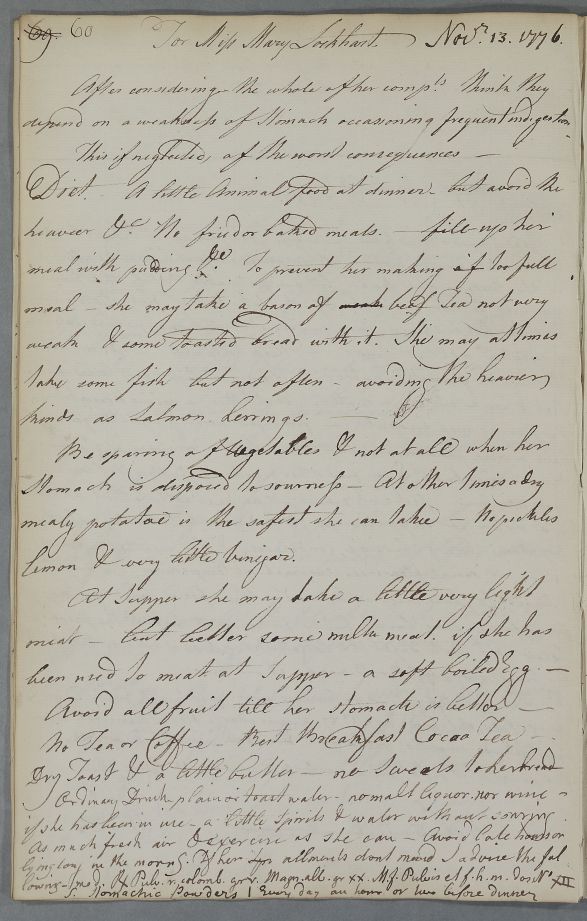 69. 60 For Miss Mary Lockhart. Novr. 13. 1776.
After considering the whole of her compts. think they
depend on a weakness of Stomach occasioning frequent indigestion
This if neglected, of the worst consequences —
Diet. A little Animal food at dinner - but avoid the
heavier &c No fried or baked meats. - fill up her
meal with pudding &c. To prevent her making too full
meal - she may take a bason of weak beef Tea not very
weak & some toasted bread with it. She may at times
take some fish but not often - avoiding the heavier
kinds as Salmon herrings.
Be sparing of Vegetables & not at all when her
Stomach is disposed to sourness - At other times a dry
mealy potatoe is the safest she can take - No pickles
lemon & very little vinigar.
At Supper she may take a little very light
meat - but better some milk meat. if she has
been used to meat at Supper - a soft boiled Egg. —
Avoid all fruit till her stomach is better —
No Tea or Coffee - Best Breakfast Cocoa Tea —
Dry Toast & a little butter - no Sweets to her bread
Ordinary Drink plain or toast water - no malt liquor. nor wine -
if she has been in use - a little Spirits & water without souring.
As much fresh air & exercise as she can - Avoid late hours or
lying long in the morng. If her ailments dont mend I advise the fol
lowing - Imo ℞ Pulv. r. colomb. gr v. Magn. alb. gr xx. M. f. Pulvis et f. h. m. dos No XII
S. Stomachic Powders 1 Every day an hour or two before dinner